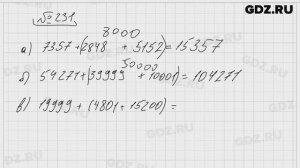 GDZ.RU
№ 231
8000
а) 7357 + (2848 + 5152) = 15357
50000
б) 54271 + (39999 + 10001) = 104271
в) 19999 + (4801 + 15200) =
GDZ.RU